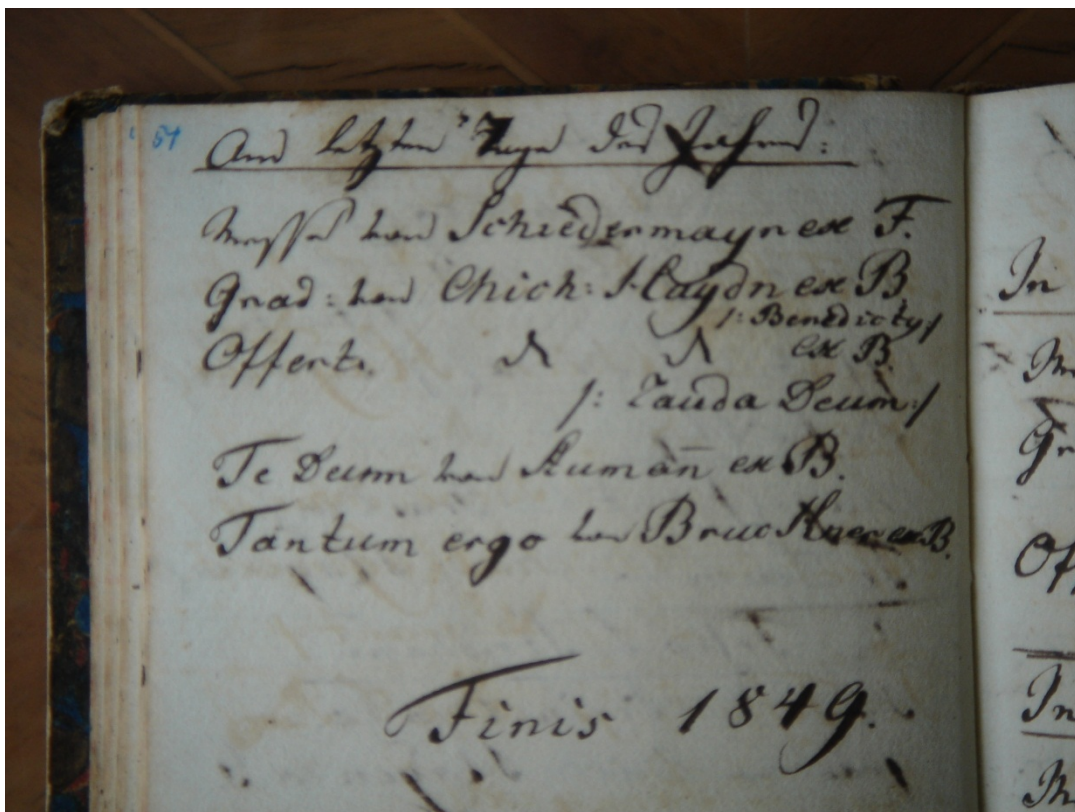 54
Am letzten Tage des Jahres:
Messe von Schiedermayr ex F.
Grad: von Mich: Haydn ex B
/: Benedicty :/
Offert. ex B.
/: Lauda Deum :/
Te Deum von Aumañ ex B.
Tantum ergo von Bruckner ex B.
Finis 1849.
In
Gr
Of
In